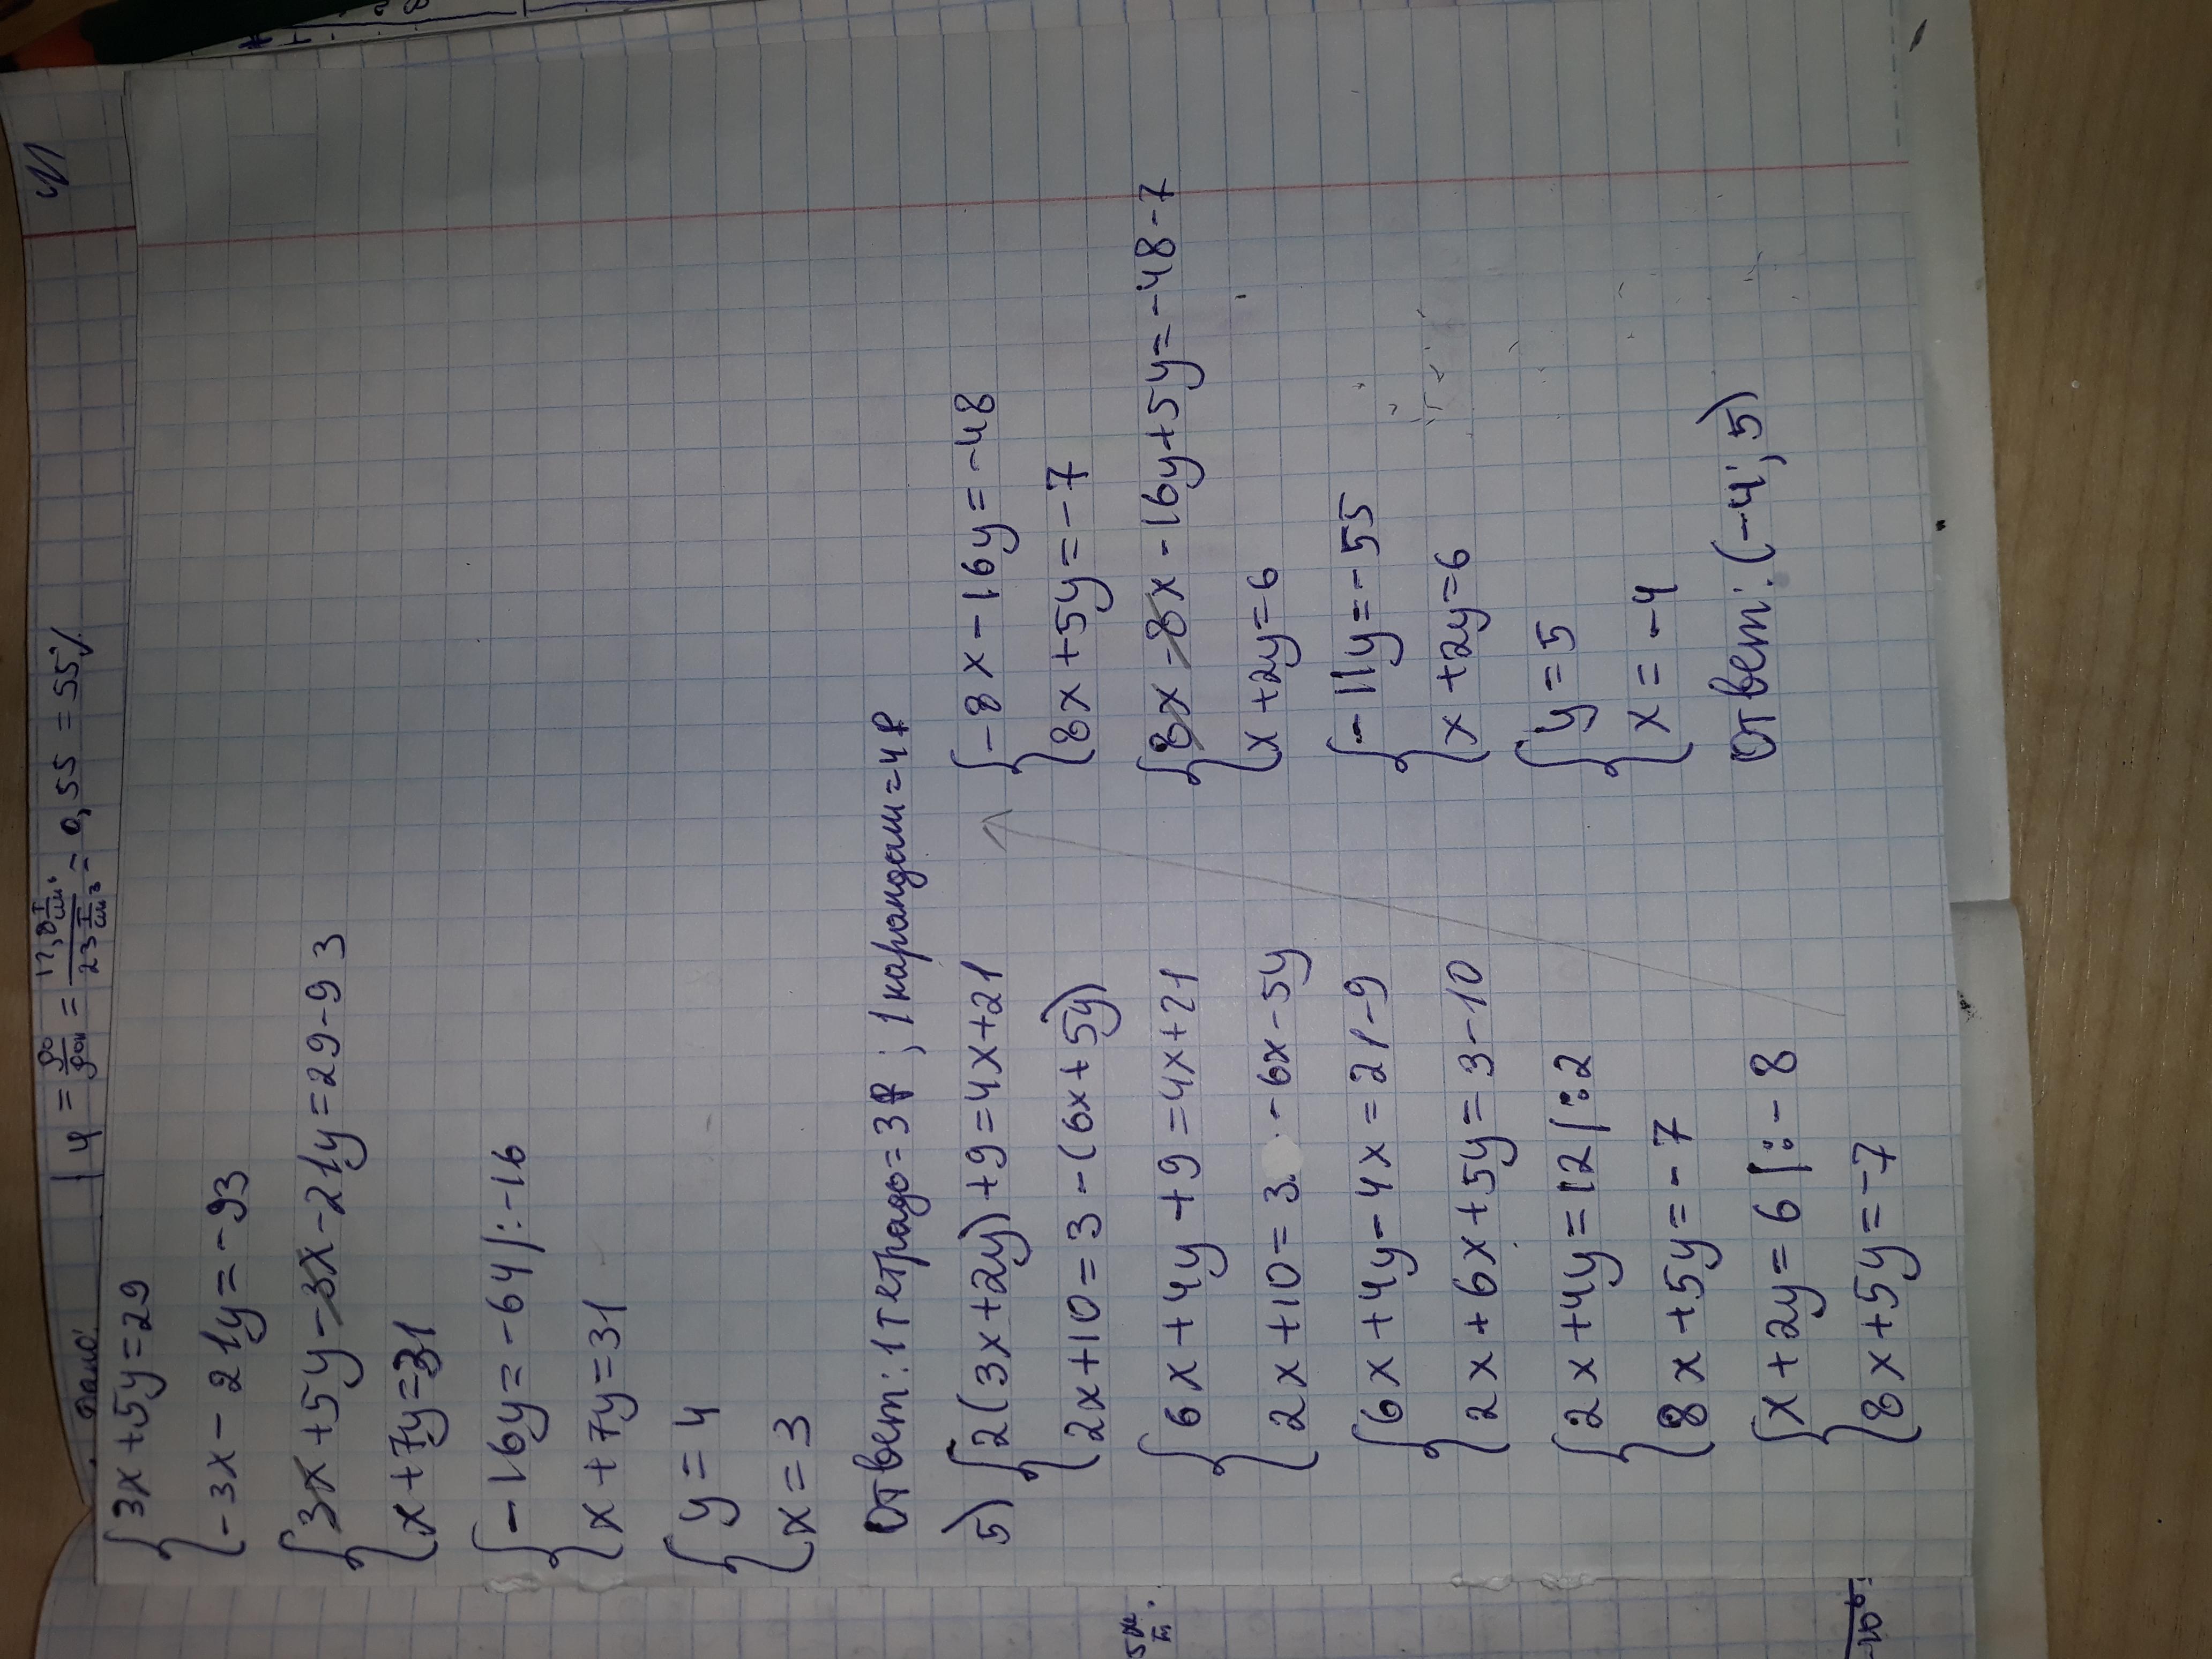 Дано:
φ = ρ₀/ρ₀н = 17,8 г/см³ / 23 г/см³ = 0,55 = 55%
{3x+5y=29
-3x-21y=-93
{3x+5y-3x-21y=29-93
x+7y=31
{-16y=-64|:-16
x+7y=31
{y=4
x=3
Ответ: 1 тетрадь=3р ; 1 карандаш=4р
5) {2(3x+2y)+9=4x+21
2x+10=3-(6x+5y)
{6x+4y+9=4x+21
2x+10=3-6x-5y
{6x+4y-4x=21-9
2x+6x+5y=3-10
{2x+4y=12|:2
8x+5y=-7
{x+2y=6|:-8
8x+5y=-7
{-8x-16y=-48
8x+5y=-7
{8x-8x-16y+5y=-48-7
x+2y=6
{-11y=-55
x+2y=6
{y=5
x=-4
Ответ: (-4; 5)